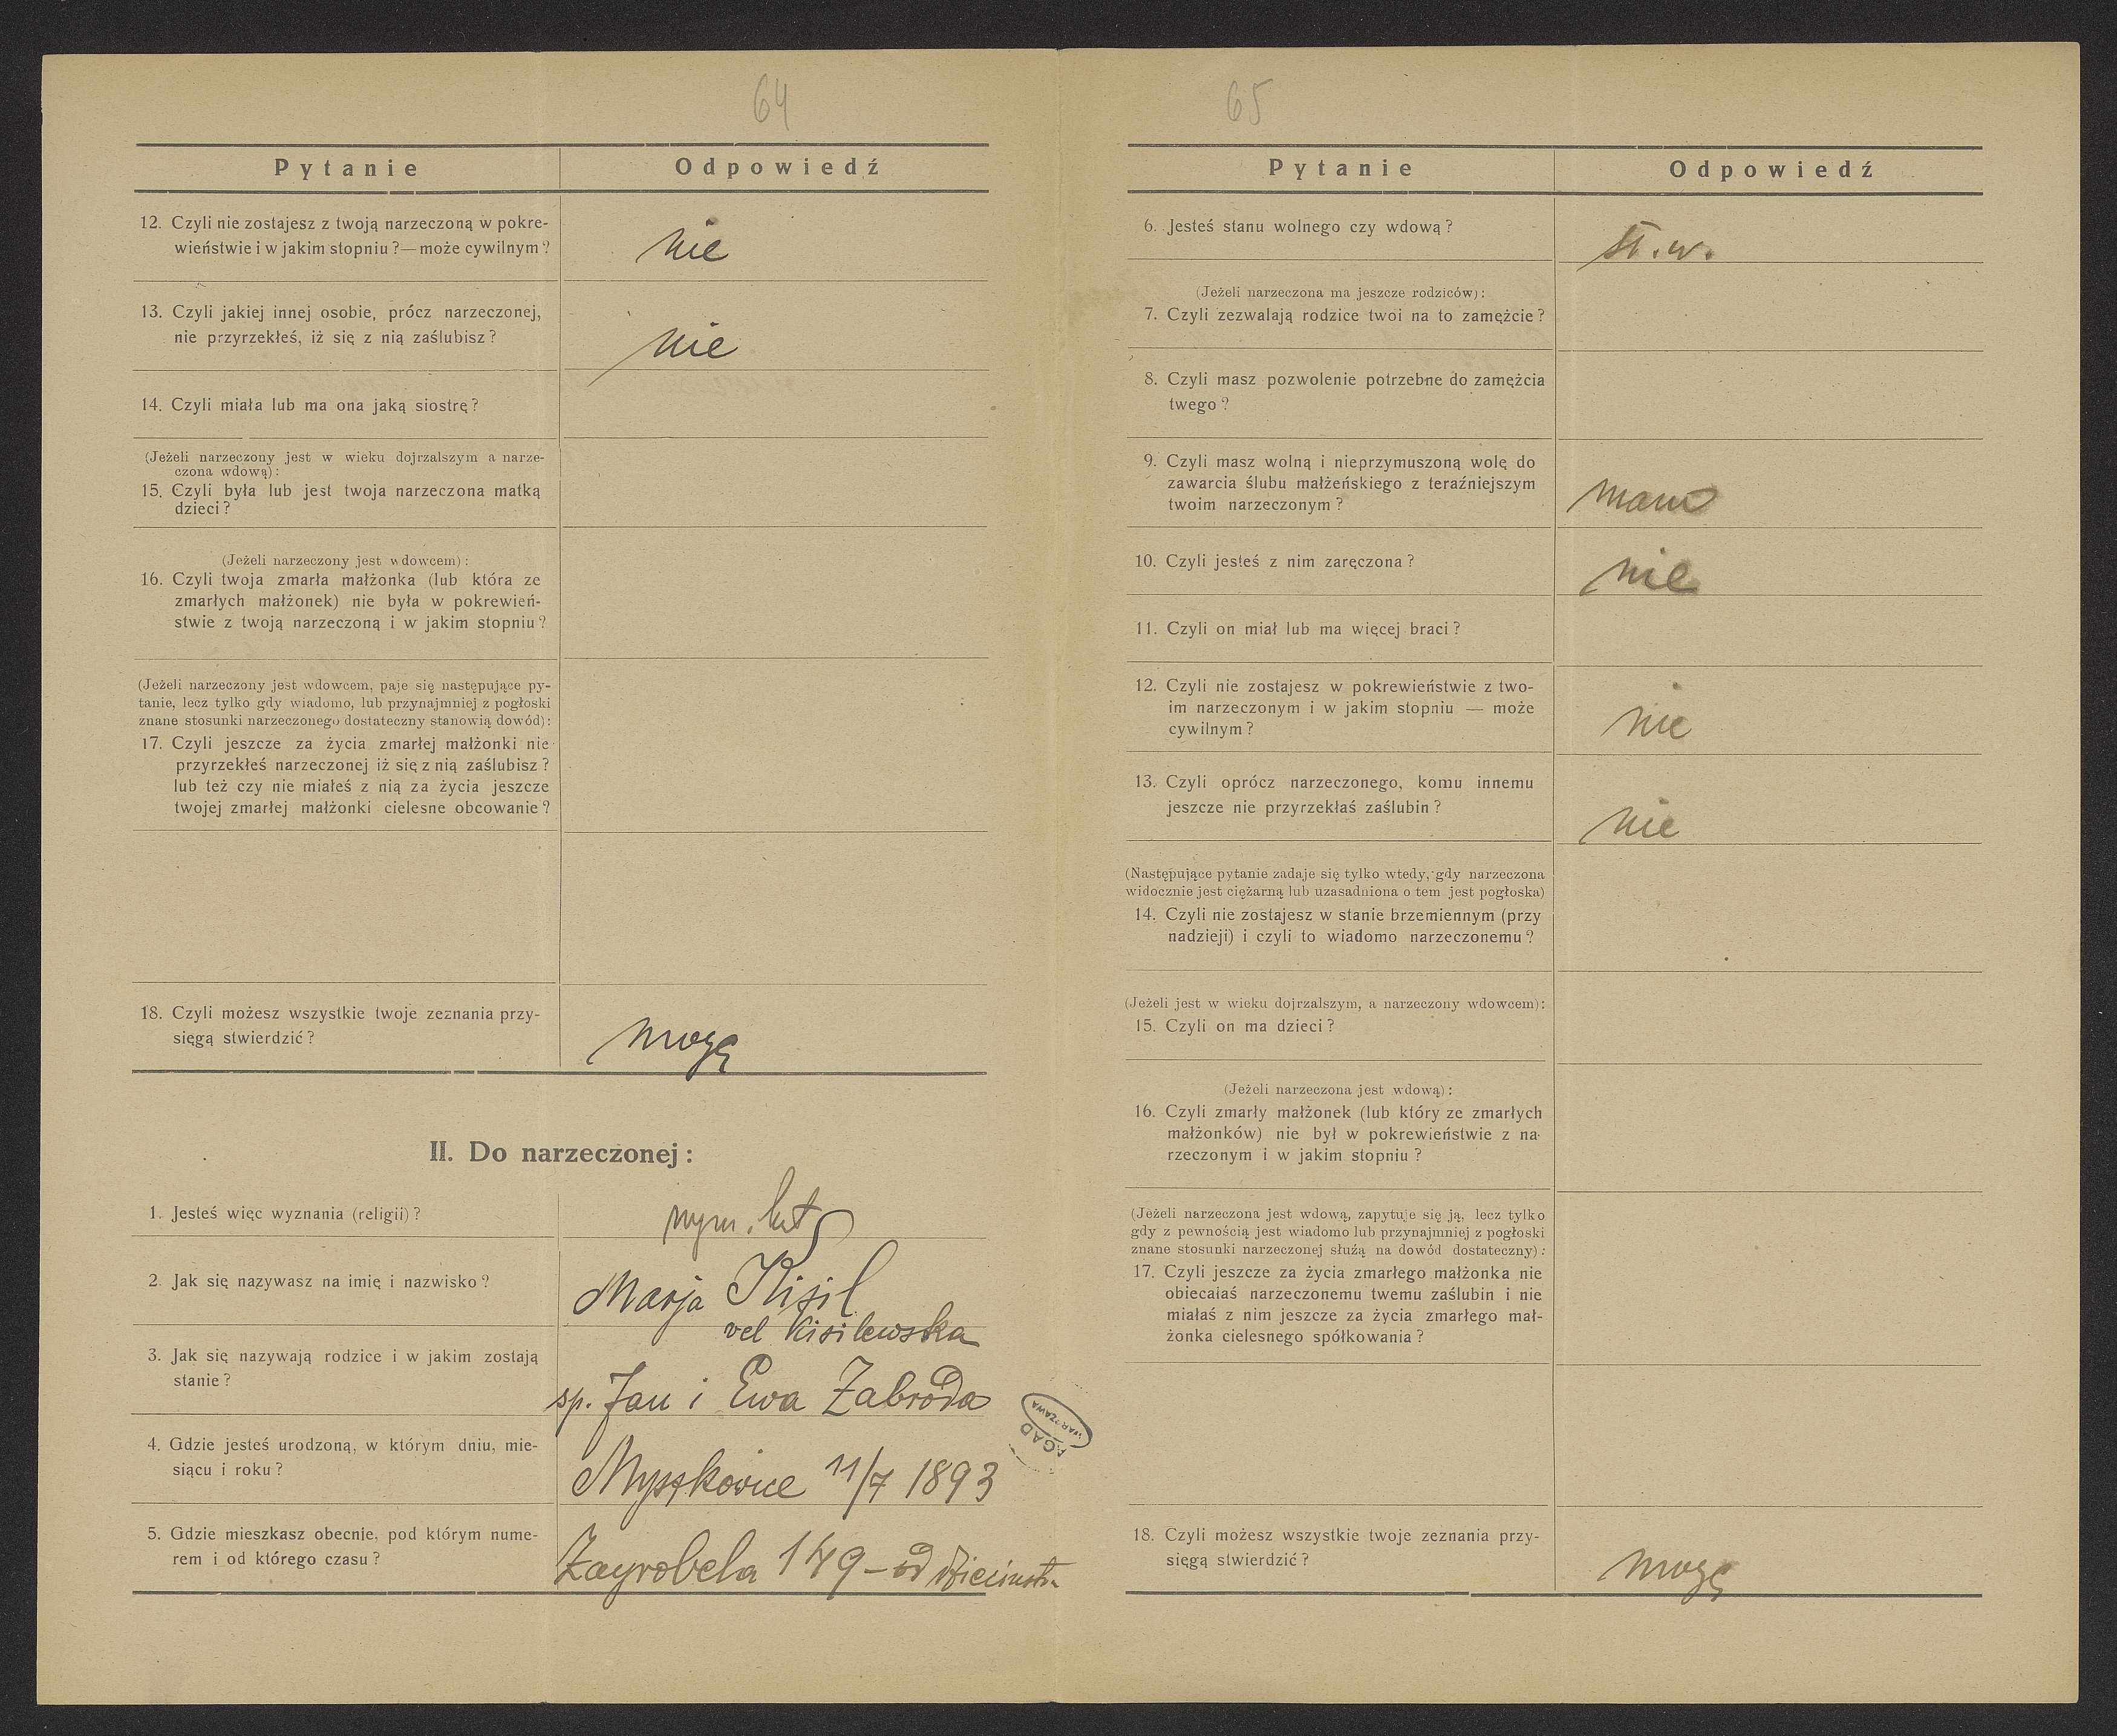 64
Pytanie
Odpowiedź
12. Czyli nie zostajesz z twoją narzeczoną w pokre-
wieństwie i w jakim stopniu?—może cywilnym?
nie
13. Czyli jakiej innej osobie, prócz narzeczonej,
nie przyrzekłeś, iż się z nią zaślubisz?
nie
14. Czyli miała lub ma ona jaką siostrę?
(Jeżeli narzeczony jest w wieku dojrzalszym a narze-
czona wdową):
15. Czyli była lub jest twoja narzeczona matką
dzieci?
(Jeżeli narzeczony jest wdowcem):
16. Czyli twoja zmarła małżonka (lub która ze
zmarłych małżonek) nie była w pokrewień-
stwie z twoją narzeczoną i w jakim stopniu?
(Jeżeli narzeczony jest wdowcem, paje się następujące py-
tanie, lecz tylko gdy wiadomo, lub przynajmniej z pogłoski
znane stosunki narzeczonego dostateczny stanowią dowód):
17. Czyli jeszcze za życia zmarłej małżonki nie
przyrzekłeś narzeczonej iż się z nią zaślubisz?
lub też czy nie miałeś z nią za życia jeszcze
twojej zmarłej małżonki cielesne obcowanie?
18. Czyli możesz wszystkie twoje zeznania przy-
sięgą stwierdzić?
mogę
II. Do narzeczonej:
1. Jesteś więc wyznania (religii)?
2. Jak się nazywasz na imię i nazwisko?
Marja Kisil
vel Kisilewska
3. Jak się nazywają rodzice i w jakim zostają
stanie?
sp. Jan i Ewa Zabroda
4. Gdzie jesteś urodzoną, w którym dniu, mie-
siącu i roku?
Myszkowice 11/7 1893
5. Gdzie mieszkasz obecnie, pod którym nume-
rem i od którego czasu?
Zagrobela 149 – od dzieciństw
AGAD
WARSZAWA
65
Pytanie
Odpowiedź
6. Jesteś stanu wolnego czy wdową?
st. w.
(Jeżeli narzeczona ma jeszcze rodziców):
7. Czyli zezwalają rodzice twoi na to zamęźcie?
8. Czyli masz pozwolenie potrzebne do zamęźcia
twego?
9. Czyli masz wolną i nieprzymuszoną wolę do
zawarcia ślubu małżeńskiego z teraźniejszym
twoim narzeczonym?
mam
10. Czyli jesteś z nim zaręczona?
nie
11. Czyli on miał lub ma więcej braci?
12. Czyli nie zostajesz w pokrewieństwie z two-
im narzeczonym i w jakim stopniu — może
cywilnym?
nie
13. Czyli oprócz narzeczonego, komu innemu
jeszcze nie przyrzekłaś zaślubin?
nie
(Następujące pytanie zadaje się tylko wtedy, gdy narzeczona
widocznie jest ciężarną lub uzasadniona o tem jest pogłoska)
14. Czyli nie zostajesz w stanie brzemiennym (przy
nadzieji) i czyli to wiadomo narzeczonemu?
(Jeżeli jest w wieku dojrzalszym, a narzeczony wdowcem):
15. Czyli on ma dzieci?
(Jeżeli narzeczona jest wdową):
16. Czyli zmarły małżonek (lub który ze zmarłych
małżonków) nie był w pokrewieństwie z na-
rzeczonym i w jakim stopniu?
(Jeżeli narzeczona jest wdową, zapytuje się ją, lecz tylko
gdy z pewnością jest wiadomo lub przynajmniej z pogłoski
znane stosunki narzeczonej służą na dowód dostateczny):
17. Czyli jeszcze za życia zmarłego małżonka nie
obiecałaś narzeczonemu twemu zaślubin i nie
miałaś z nim jeszcze za życia zmarłego mał-
żonka cielesnego spółkowania?
18. Czyli możesz wszystkie twoje zeznania przy-
sięgą stwierdzić?
mogę